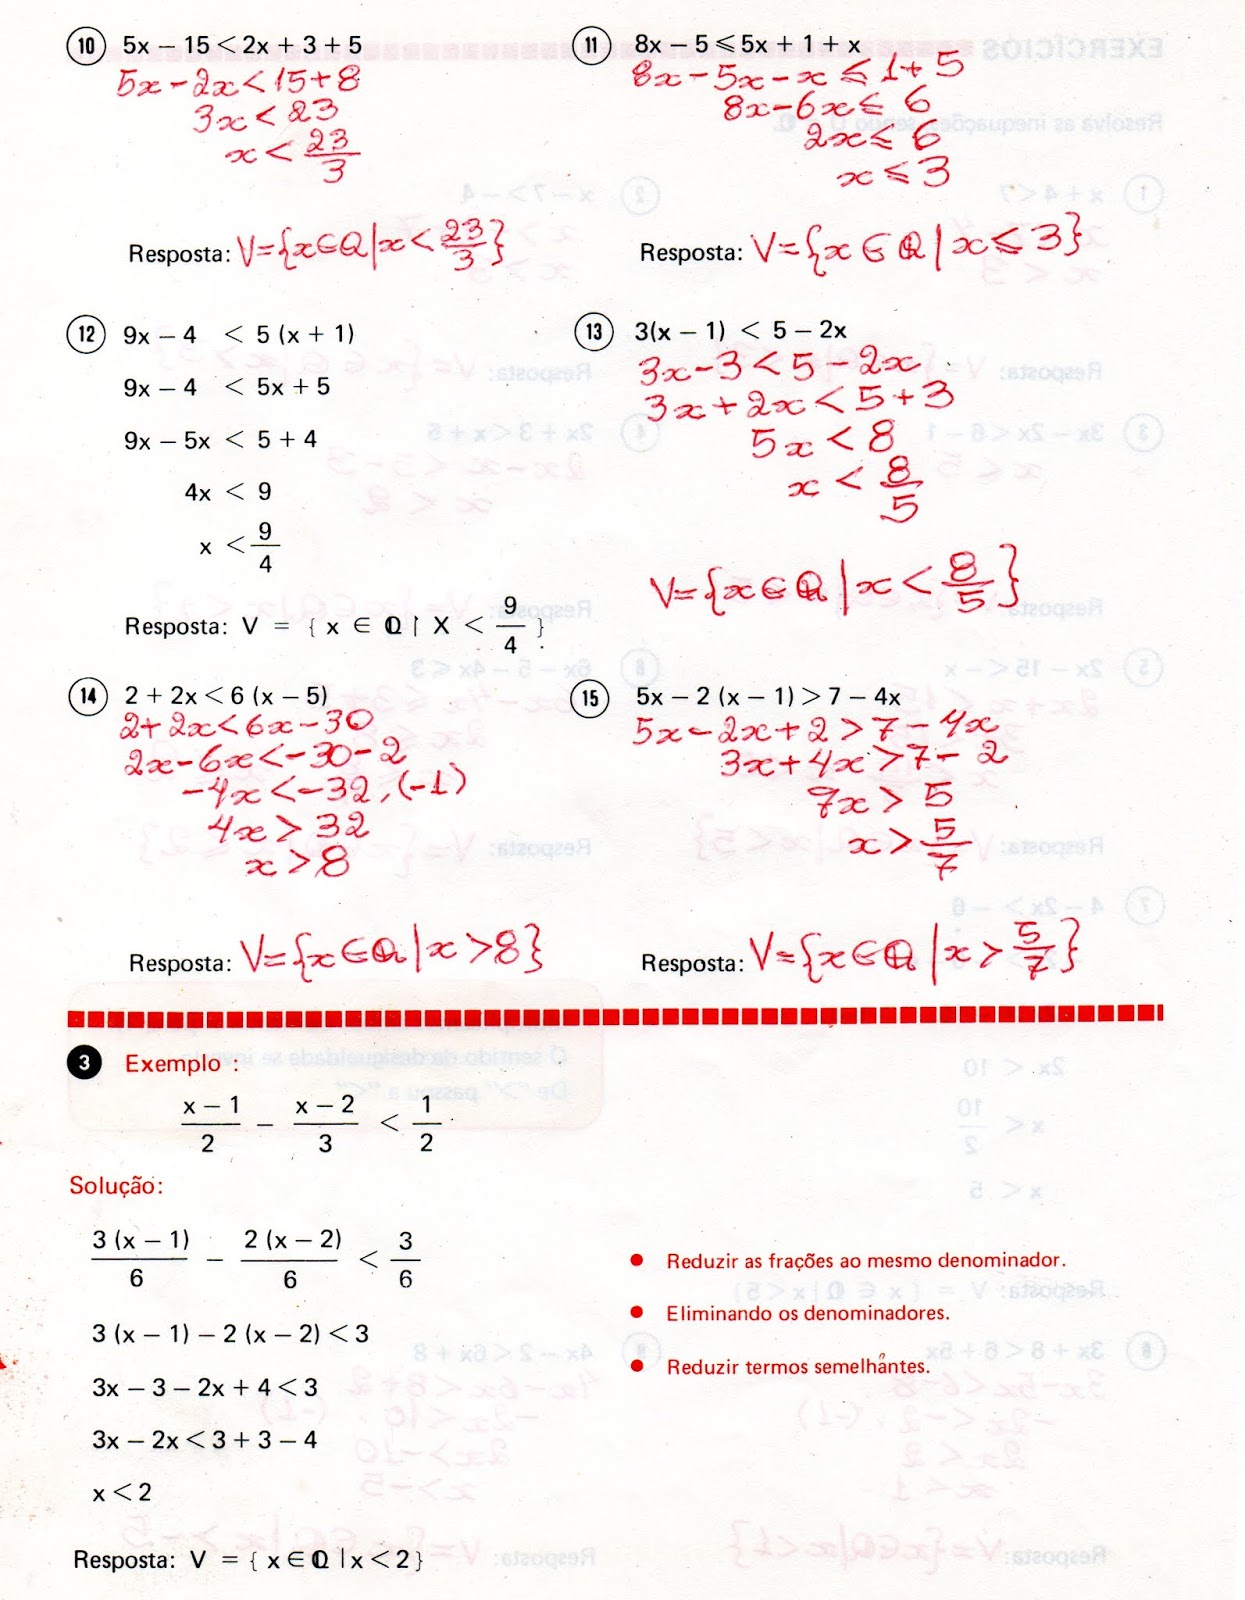 10 5x − 15 < 2x + 3 + 5
5x − 2x < 15 + 8
3x < 23
x < 23/3
Resposta: V = {x ∈ Q | x < 23/3}
11 8x − 5 ⩽ 5x + 1 + x
8x − 5x − x ⩽ 1 + 5
8x − 6x ⩽ 6
2x ⩽ 6
x ⩽ 3
Resposta: V = {x ∈ Q | x ⩽ 3}
12 9x − 4 < 5 (x + 1)
9x − 4 < 5x + 5
9x − 5x < 5 + 4
4x < 9
x < 9/4
Resposta: V = { x ∈ Q | X < 9/4 }
13 3(x − 1) < 5 − 2x
3x − 3 < 5 − 2x
3x + 2x < 5 + 3
5x < 8
x < 8/5
V = {x ∈ Q | x < 8/5}
14 2 + 2x < 6 (x − 5)
2 + 2x < 6x − 30
2x − 6x < −30 − 2
−4x < −32 . (−1)
4x > 32
x > 8
Resposta: V = {x ∈ Q | x > 8}
15 5x − 2 (x − 1) > 7 − 4x
5x − 2x + 2 > 7 − 4x
3x + 4x > 7 − 2
7x > 5
x > 5/7
Resposta: V = {x ∈ Q | x > 5/7}
3 Exemplo :
x − 1/2 − x − 2/3 < 1/2
Solução:
3 (x − 1)/6 − 2 (x − 2)/6 < 3/6
• Reduzir as frações ao mesmo denominador.
3 (x − 1) − 2 (x − 2) < 3
• Eliminando os denominadores.
3x − 3 − 2x + 4 < 3
• Reduzir termos semelhantes.
3x − 2x < 3 + 3 − 4
x < 2
Resposta: V = { x ∈ Q | x < 2 }